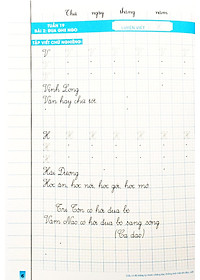 Thứ ngày tháng năm
TUẦN 19
BÀI 2:
TẬP VIẾT CHỮ NGHIÊNG
V
Vĩnh Long
Văn hay chữ tốt.
H
Hải Dương
Học ăn, học nói, học gói, học mở.
Tri Tôn có hội đua bò
Vàm Nao có hội đua bò sang sông
(Ca dao)